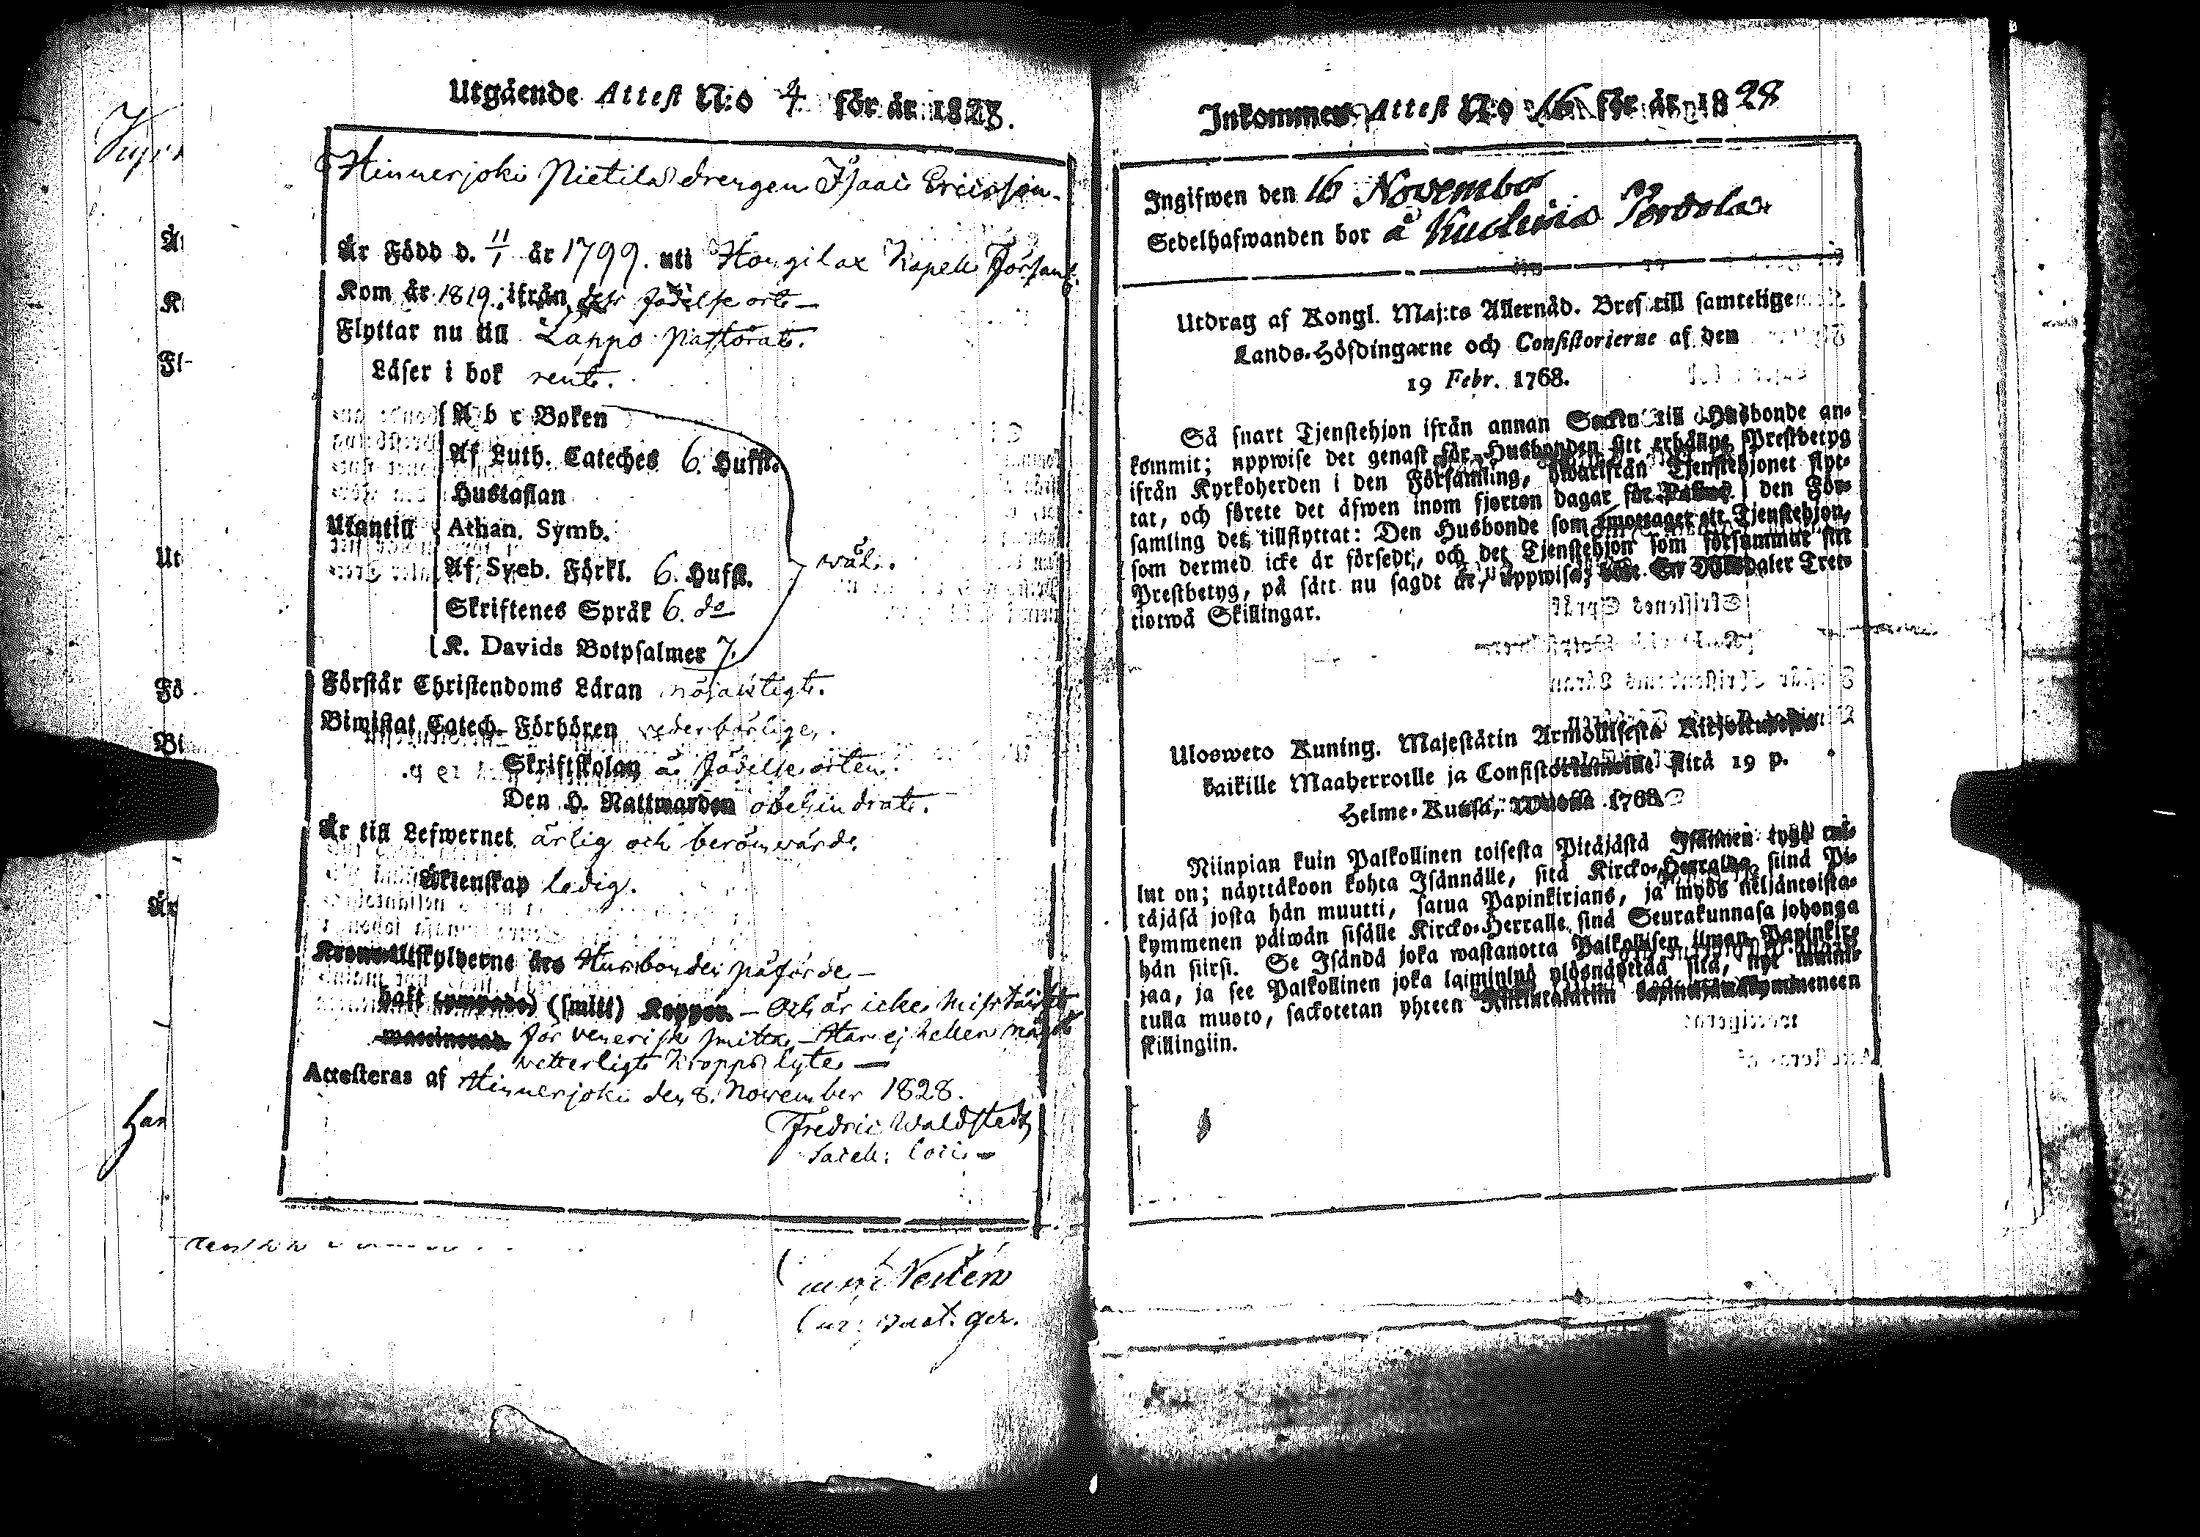 Utgående Attest N:o 4 för år 1828.
Hinnerjoki Pietilä drengen Isaac Ericsson
Är Född d. 11/1 år 1799. uti Hongilax Kapell Församl.
Kom år 1819. ifrån födelse ort
Flyttar nu till Lappo Pastorat.
Läser i bok rent.
A b c Boken
Af Luth. Cateches 6. Hufst.
Hustaflan
Utantill Athan. Symb.
wäl.
Af Sveb. Förkl. 6. Hufst.
Skriftenes Språk 6. do
K. Davids Botpsalmer 7.
Förstår Christendoms Läran nöjaktigt.
Biwistat Catech. Förhören vederbörligen.
Skriftskolan å födelse orten.
Den H. Nattwarden obehindrat.
Är till Lefwernet ärlig och berömvärd.
Äktenskap ledig.
Kronoutskylderne äro Husbonden påförde
haft (ympade) (smitt) Koppor. – Och är icke misstänkt
vaccinerad för venerisk smitta – Har ej heller något
vetterligt kropps lyte –
Attesteras af Hinnerjoki den 8. November 1828.
Fredric Waldstedt
Sacell: loci
Inkommen Attest N:o 16 för år 1828
Ingifwen den 16 November
Sedelhafwanden bor å
Utdrag af Kongl. Maj:ts Allernåd. Bref till samtelige
Lands-Höfdingarne och Consistorierne af den
19 Febr. 1768.
Så snart Tjenstehjon ifrån annan Socken till Husbonde an-
kommit; uppwise det genast för Husbonden sitt erhållne Prestbetyg
ifrån Kyrkoherden i den Församling, hwarifrån Tjenstehjonet flyt-
tat, och förete det äfwen inom fjorton dagar för i den För-
samling det tillflyttat: Den Husbonde som emottager ett Tjenstehjon,
som dermed icke är försedt, och det Tjenstehjon som försummar sitt
Prestbetyg, på sätt nu sagdt är, uppwisa, En Daler Tret-
tiotwå Skillingar.
Ulosweto Kuning. Majestätin Armollisesta Kirjoituksesta
kaikille Maaherroille ja Consistoriumeille siitä 19 p.
Helme-Kuusa, Wuonna 1768.
Niinpian kuin Palkollinen toisesta Pitäjästä Isännen tygö tul-
lut on; näyttäkoon kohta Isännälle, sitä Kircko-Herralda, siinä Pi-
täjäsä josta hän muutti, saatua Papinkirjans, ja myös neljäntoista-
kymmenen päiwän sisälle Kircko-Herralle, siinä Seurakunnasa johonga
hän siirsi. Se Isändä joka wastanotta Palkollisen ilman Papinkir-
jaa, ja see Palkollinen joka laiminlyö ylösnäyttää sitä, nyt
tulla muoto, sackotetan yhteen
skillingiin.